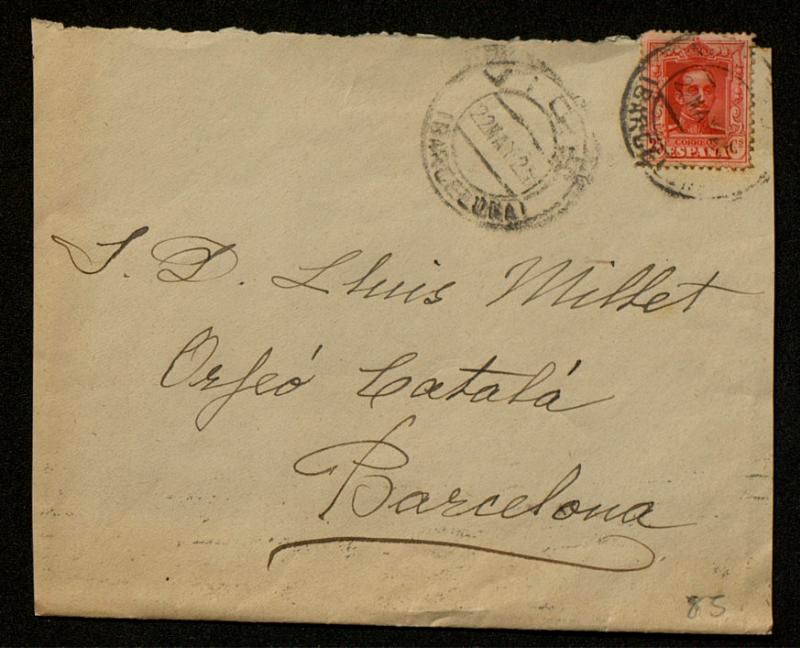 VICH
22 MAY 25
(BARCELONA)
CORREOS
ESPAÑA
S. D. Lluis Millet
Orfeó Catalá
Barcelona
85